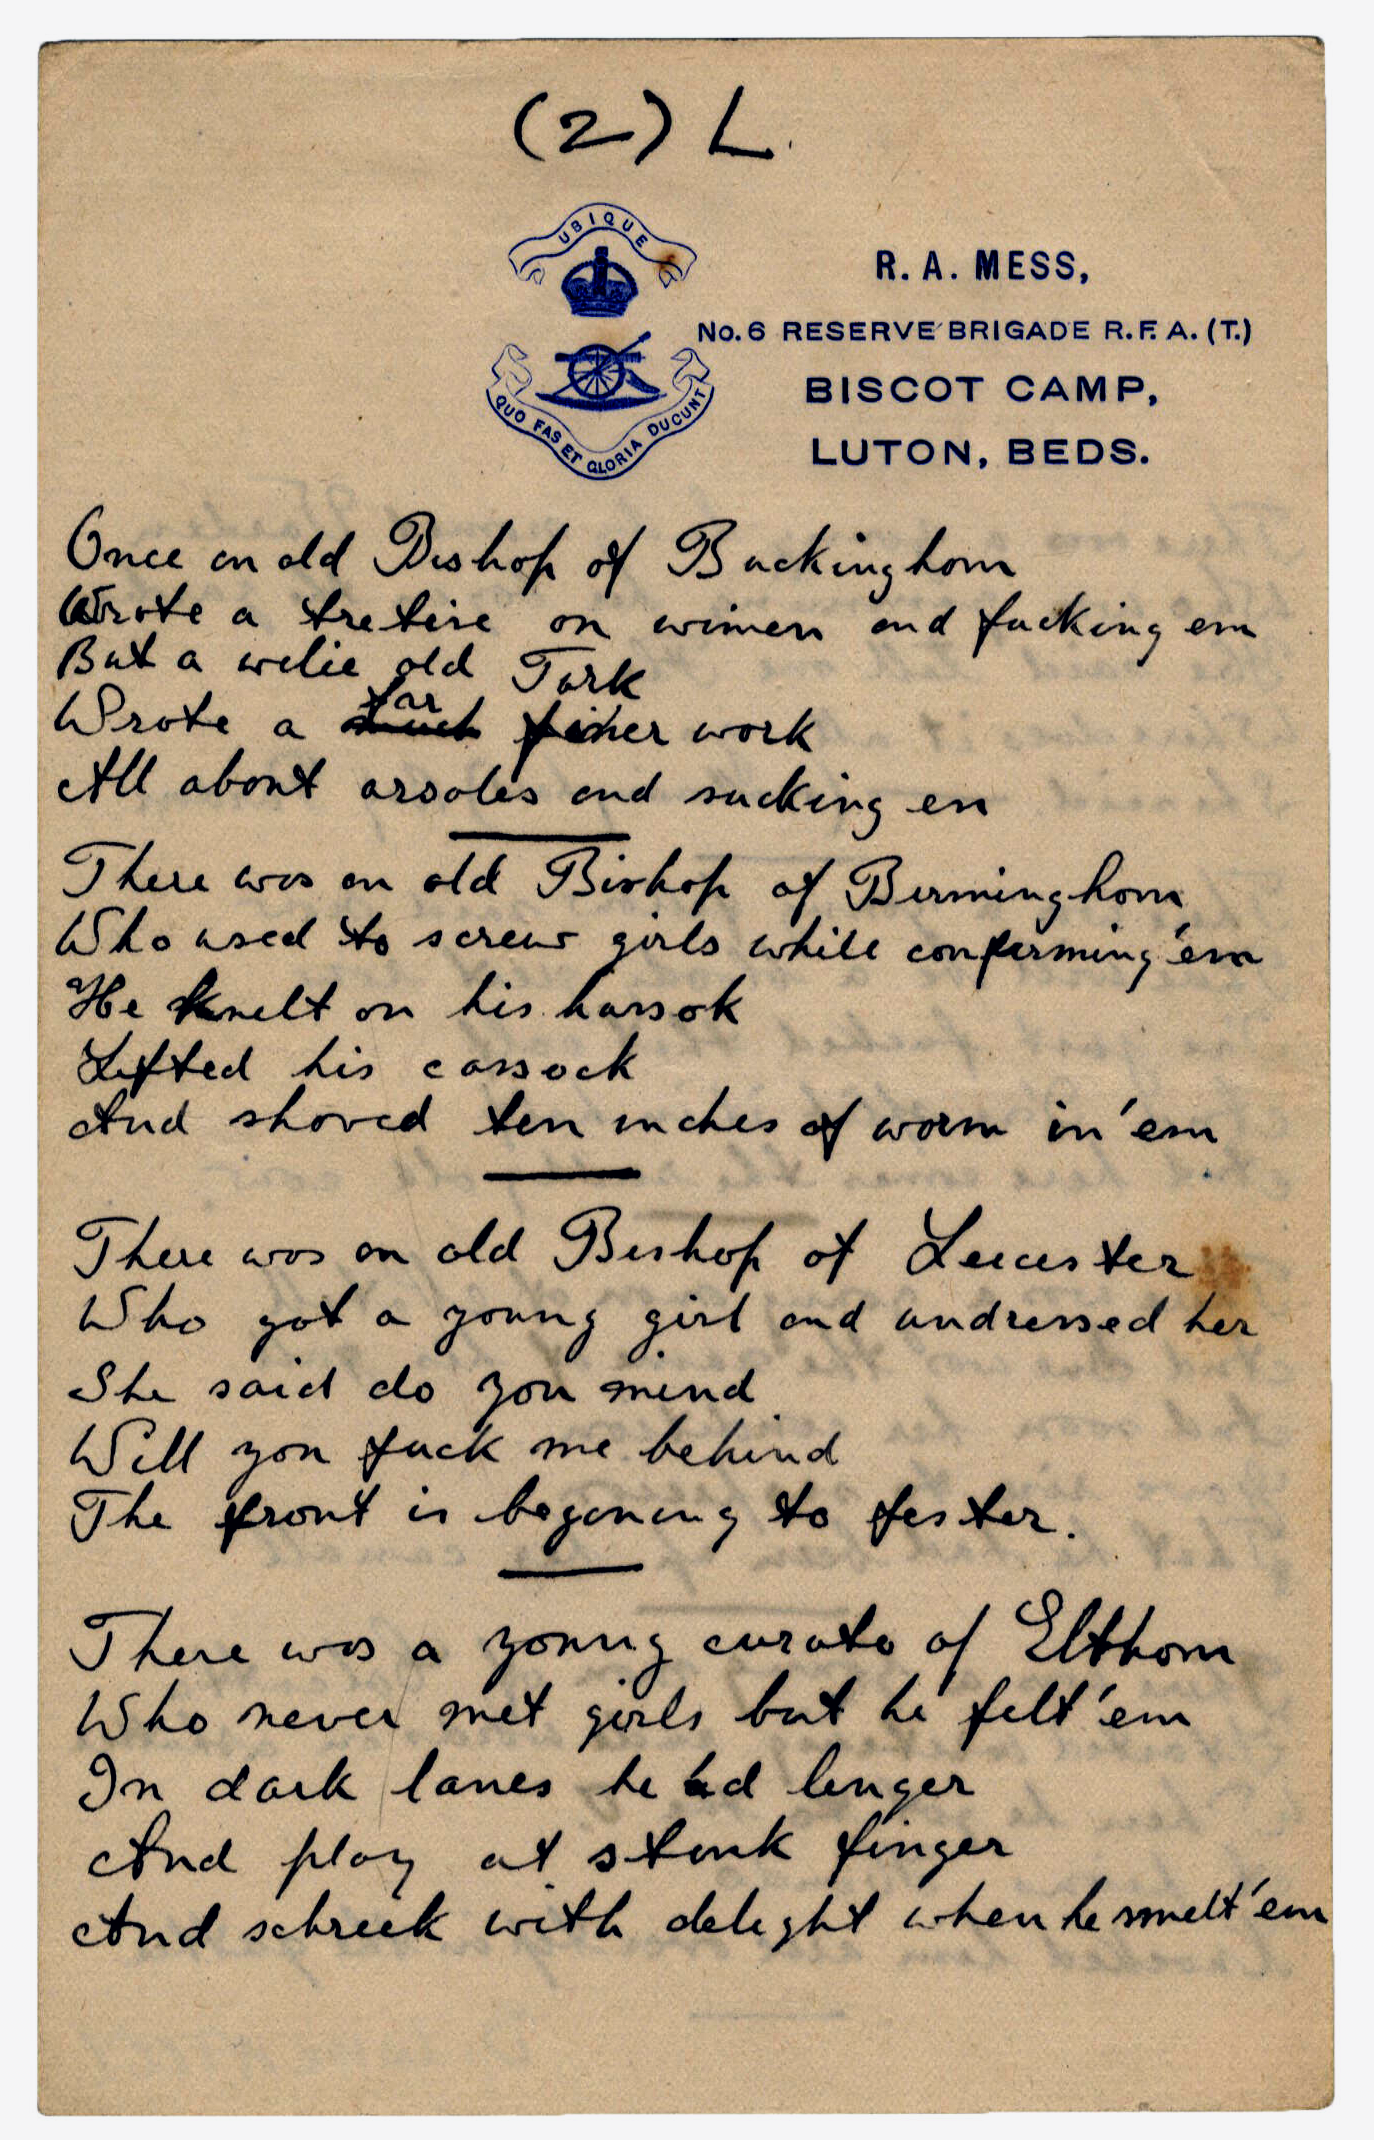 (2) L.
UBIQUE
R. A. MESS,
No. 6 RESERVE BRIGADE R.F.A. (T.)
BISCOT CAMP,
LUTON, BEDS.
QUO FAS ET GLORIA DUCUNT
Once an old Bishop of Buckingham
Wrote a tretire on wimen and fucking em
But a wilie old Turk
Wrote a much far finer work
All about arsoles and sucking en
There was an old Bishop of Birmingham
Who used to screw girls while confirming 'em
He knelt on his hassok
Lifted his cassock
And shoved ten inches of worm in 'em
There was an old Bishop of Leicester
Who got a young girl and undressed her
She said do you mind
Will you fuck me behind
The front is begining to fester.
There was a young curate of Eltham
Who never met girls but he felt 'em
In dark lanes he'd linger
And play at stink finger
And schreek with delight when he smelt 'em